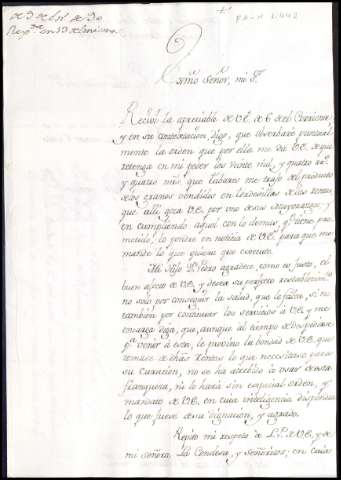 Exmo Señor, mi Sr.
Recibi la apreciable de V.E. de 6 del Corriente
y en su contestacion, digo, que observaré puntual
mente la orden que por ella me dá V.E. de que
retenga en mi poder los veinte mil, y quatro
y quatro mrs. que me trajo del producto
de los granos vendidos en de las rentas
que alli goza V.E. por uno de sus Mayorazgos y
en cumpliendo aquel con lo demas, que tiene pro
metido, lo pondré en noticia de V.E. para que me
mande lo que quiera que execute.
Mi Hijo Dn. Pedro agradece, como es justo, el
buen afecto de V.E. y desea su perfecto restablecimto.
no solo por conseguir la salud, que le falta, si no
tambien por continuar los servicios à V.E. y me
encarga diga, que, aunque al tiempo de despedirse
pa. venir à esta, le previno la bondad de V.E. que
tomase de dhas. Rentas lo que necesitase para
su curacion, no se ha atrevido à usar de esta
franqueza, ni lo hará sin especial orden, y
mandato de V.E. en cuia inteligencia dispondrá
lo que fuese de su dignacion, y agrado.
Repito mi respeto à L.P. de V.E. y de
mi señora La Condesa, y señoritos; en cuia